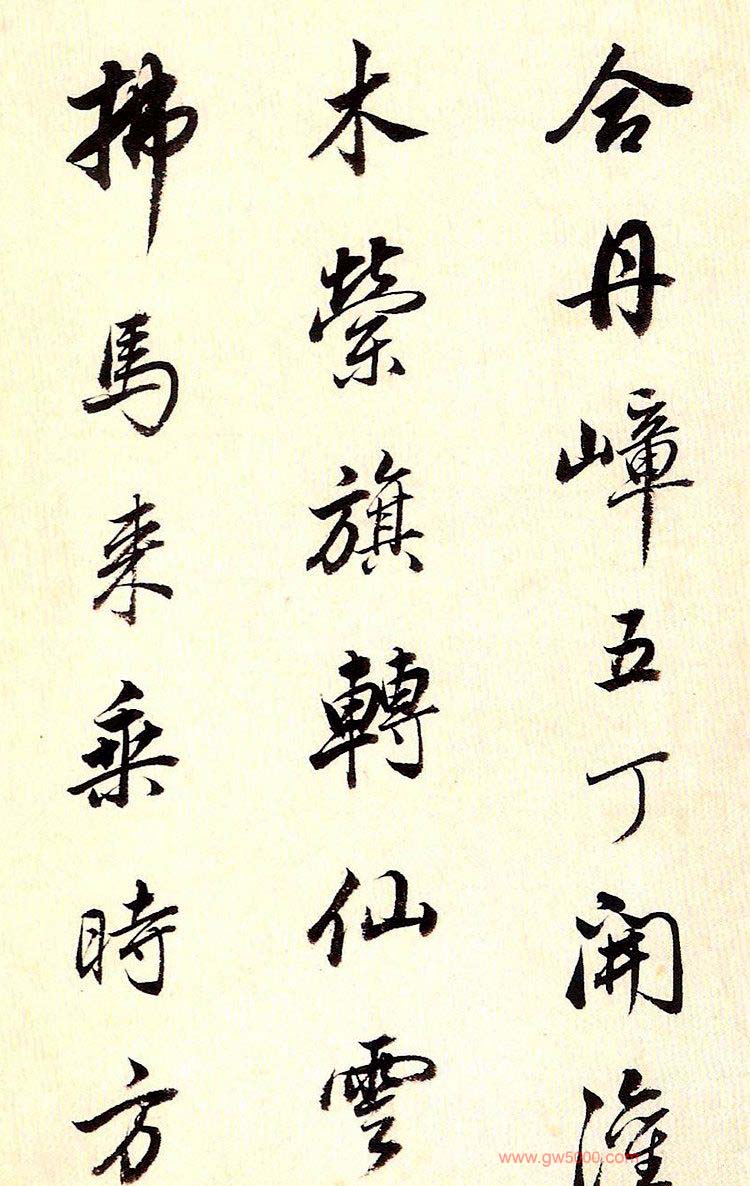 合丹嶂五丁開灌
木縈旗轉仙雲
拂馬来乗時方
www.gw5000.com